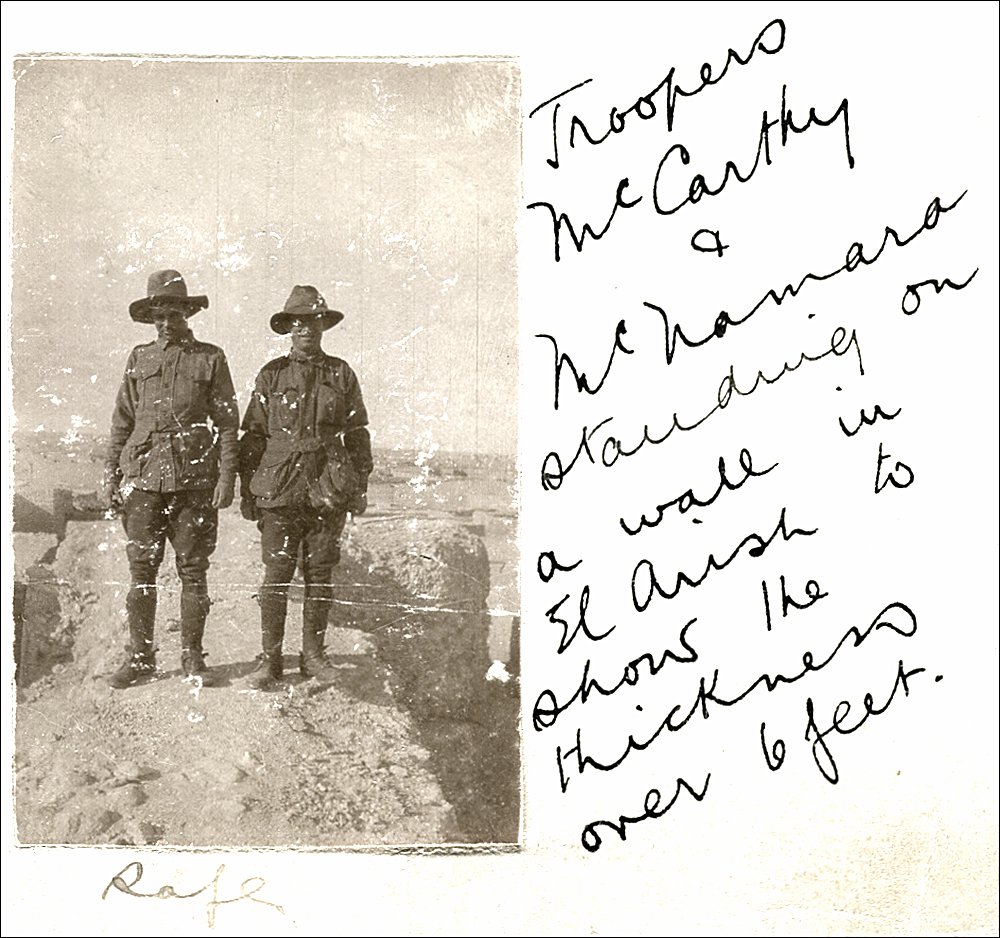 Troopers
McCarthy
&
McNamara
standing on
a wall in
El Arish to
show the
thickness
over 6 feet.
Rafe